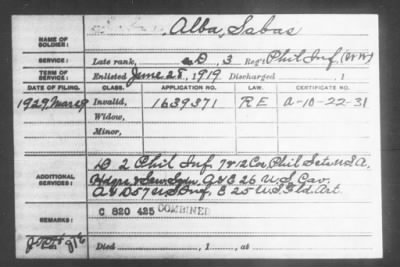 NAME OF SOLDIER: Alba, Sabas
SERVICE: Late rank, D, 3 Reg't Phil Inf, (WW)
TERM OF SERVICE: Enlisted June 28, 1919 Discharged , 1
DATE OF FILING. CLASS. APPLICATION NO. LAW. CERTIFICATE NO.
1929 Mar 9 Invalid, 1639371 R E A-10-22-31
Widow,
Minor,
ADDITIONAL SERVICES: D 2 Phil Inf, 7 & 12 Co, Phil Scts U.S.A.
Hdqrs & A & E 26 U.S. Cav.
A & D 57 U.S. Inf, E 25 U.S. Fld. Art.
REMARKS: C 820 425 COMBINED
Died , 1 , at